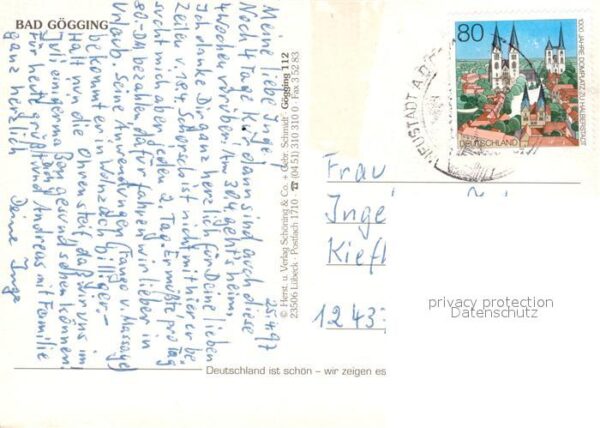 BAD GÖGGING
25.4.97
Meine liebe Inge!
Noch 4 Tage Kur dann sind auch diese
4 Wochen vorüben. Am 30.4 geht's heim.
Ich danke Dir ganz herzlich für Deine lieben
Zeilen v. 18.4. Schorsch ist nicht mit hier er be
sucht mich aben jeden 2. Tag. Er müßte pro Tag
80.-DM bezahlen, dafür fahren wir lieber in
Urlaub. Seine Anwendungen (Fango v. Massage)
bekommt er in Wolnzach billiger.-
Halt nun die Ohren steif, daß wir uns im
Juli einigermaßen gesund sehen können!
Für heute grüßt und Andreas mit Familie
ganz herzlich
Deine Inge
© Herst. u. Verlag Schöning & Co. + Gebr. Schmidt · Gögging 112
23506 Lübeck · Postfach 1710 · ☎ (04 51) 310 310 · Fax 3 52 83
80
1000 JAHRE DOMPLATZ ZU HALBERSTADT
DEUTSCHLAND
NEUSTADT A.D.
Frau
Inge
Kief
1243
privacy protection
Datenschutz
Deutschland ist schön – wir zeigen es